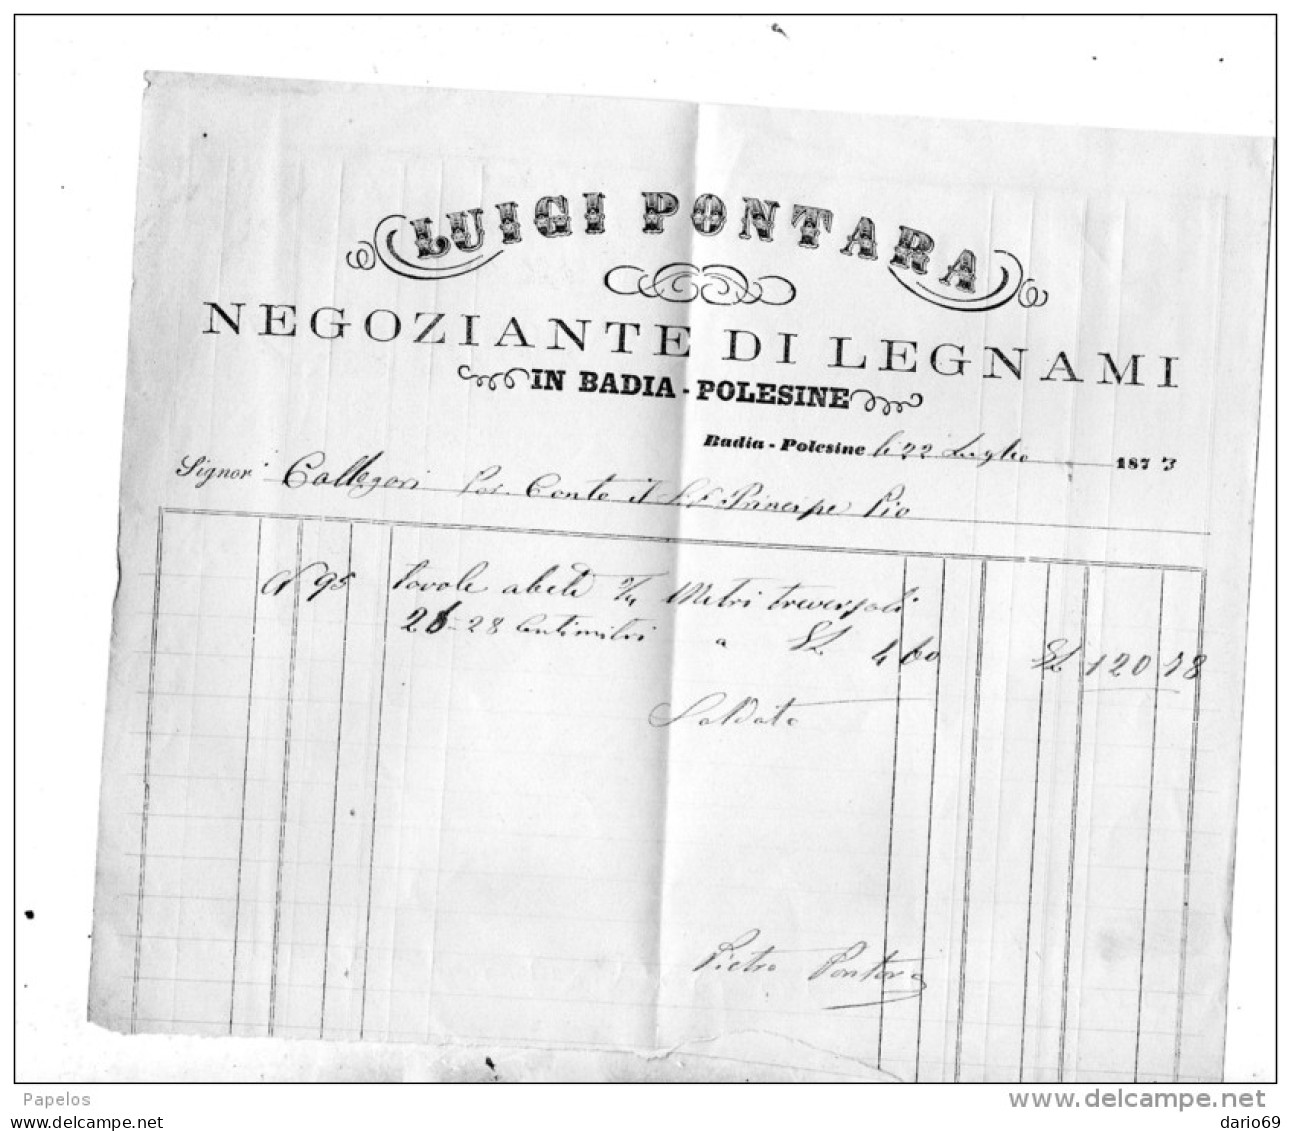 LUIGI PONTARA
NEGOZIANTE DI LEGNAMI
IN BADIA - POLESINE
Badia - Polesine li 22 Luglio 1873
Signor Callegari Per Conto il Principe Pio
N 95 Tavole abete 2/4 Metri
28 Centimitri a 4 60 120 18
Saldato
Pietro Pontara
Papelos
www.delcampe.net
www.delcampe.net
dario69